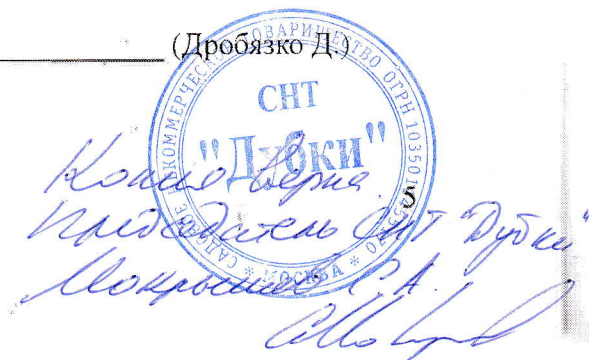 (Дробязко Д.)
САДОВОЕ НЕКОММЕРЧЕСКОЕ ТОВАРИЩЕСТВО ОГРН
* МОСКВА *
СНТ
"Дубки"
5
Копия верна
Председатель СНТ "Дубки"
С.А.